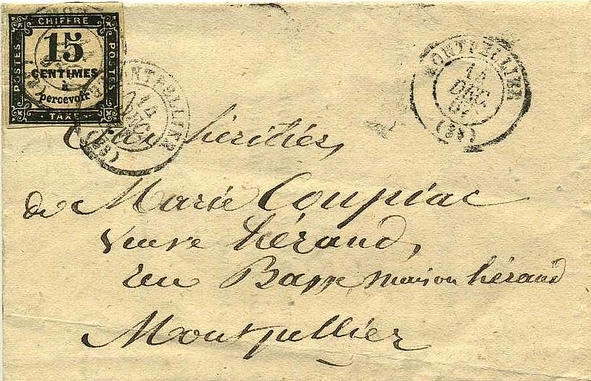 CHIFFRE
POSTES
15
CENTIMES
à
percevoir
POSTES
TAXE
MONTPELLIER
14
DEC.
(33)
MONTPELLIER
14
DEC.
(33)
héritiés,
de Marie Coupiac
veuve hérand,
rue Basse maison hérand
Montpellier